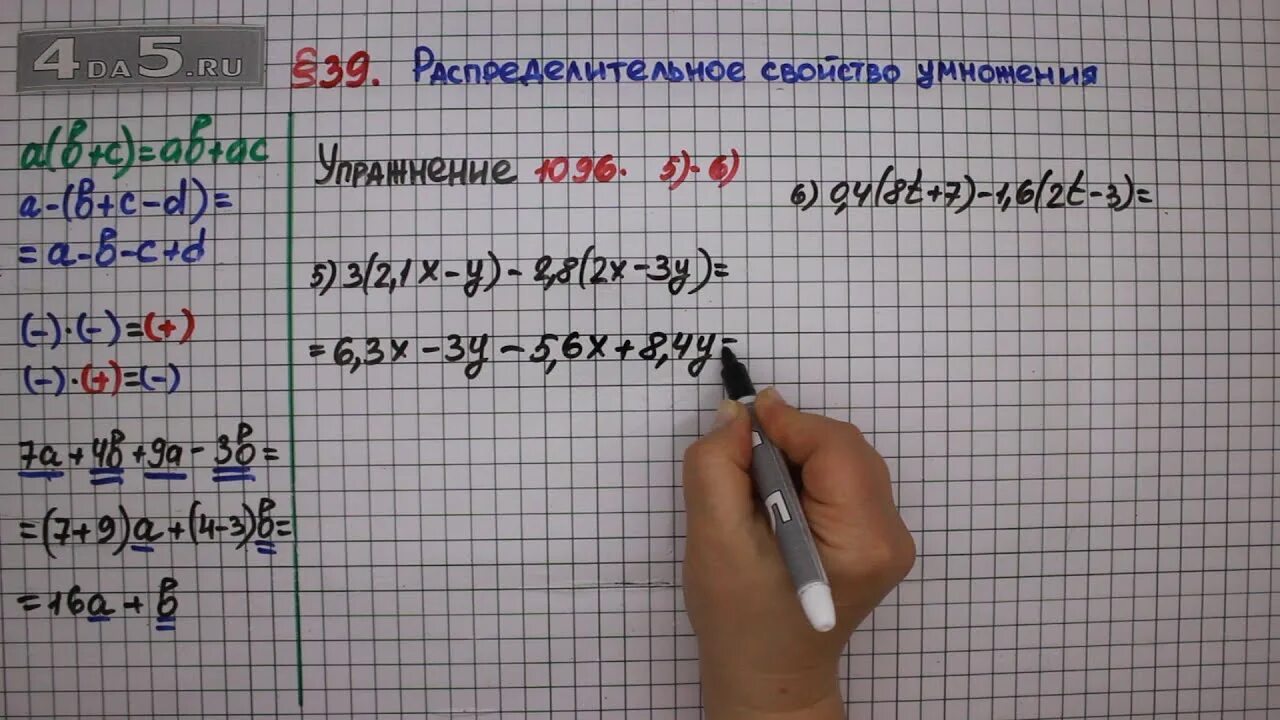 4DA5.RU
§39. Распределительное свойство умножения
a(b+c)=ab+ac
a-(b+c-d)=
=a-b-c+d
(-)·(-)=(+)
(-)·(+)=(-)
7a+4b+9a-3b=
=(7+9)a+(4-3)b=
=16a+b
Упражнение 1096. 5)-6)
5) 3(2,1x-y)-2,8(2x-3y)=
=6,3x-3y-5,6x+8,4y=
6) 0,4(8t+7)-1,6(2t-3)=